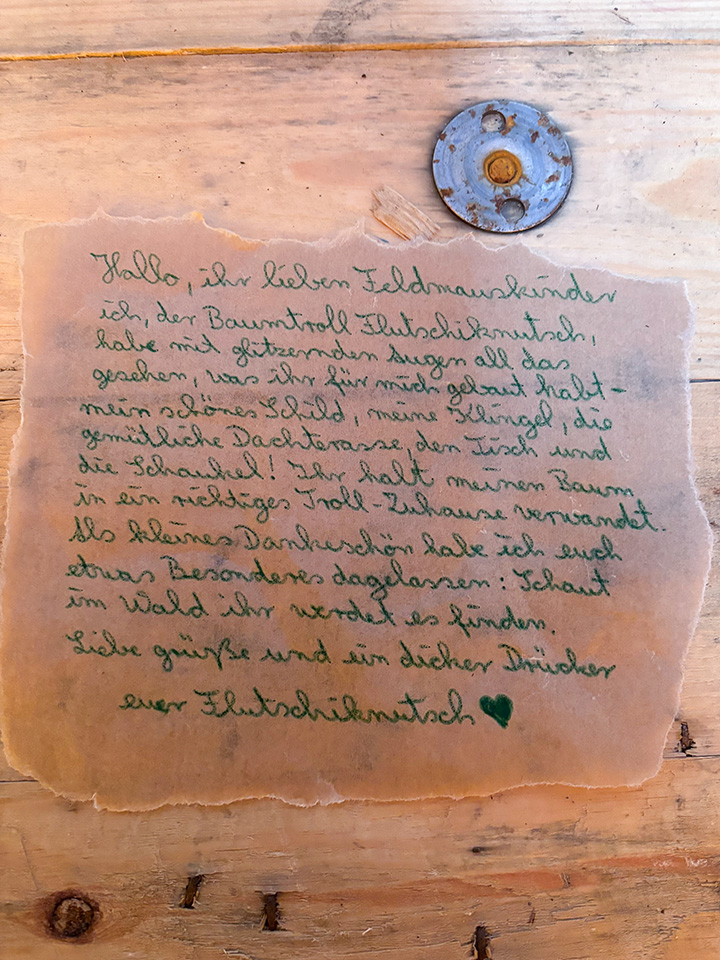 Hallo, ihr lieben Feldmauskinder
ich, der Baumtroll Flutschiknutsch,
habe mit glitzernden Augen all das
gesehen, was ihr für mich gebaut habt-
mein schönes Schild, meine Klingel, die
gemütliche Dachterasse, den Tisch und
die Schaukel! Ihr habt meinen Baum
in ein richtiges Troll-Zuhause verwandet.
Als kleines Dankeschön habe ich euch
etwas Besonderes dagelassen: Schaut
im Wald ihr werdet es finden.
Liebe grüße und ein dicker Drücker
euer Flutschiknutsch